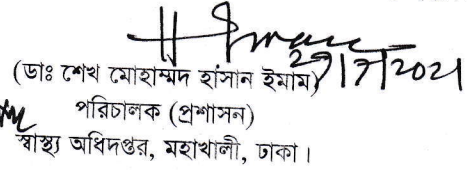 ২৭/৭/২০২১
(ডাঃ শেখ মোহাম্মদ হাসান ইমাম)
পরিচালক (প্রশাসন)
স্বাস্থ্য অধিদপ্তর, মহাখালী, ঢাকা।